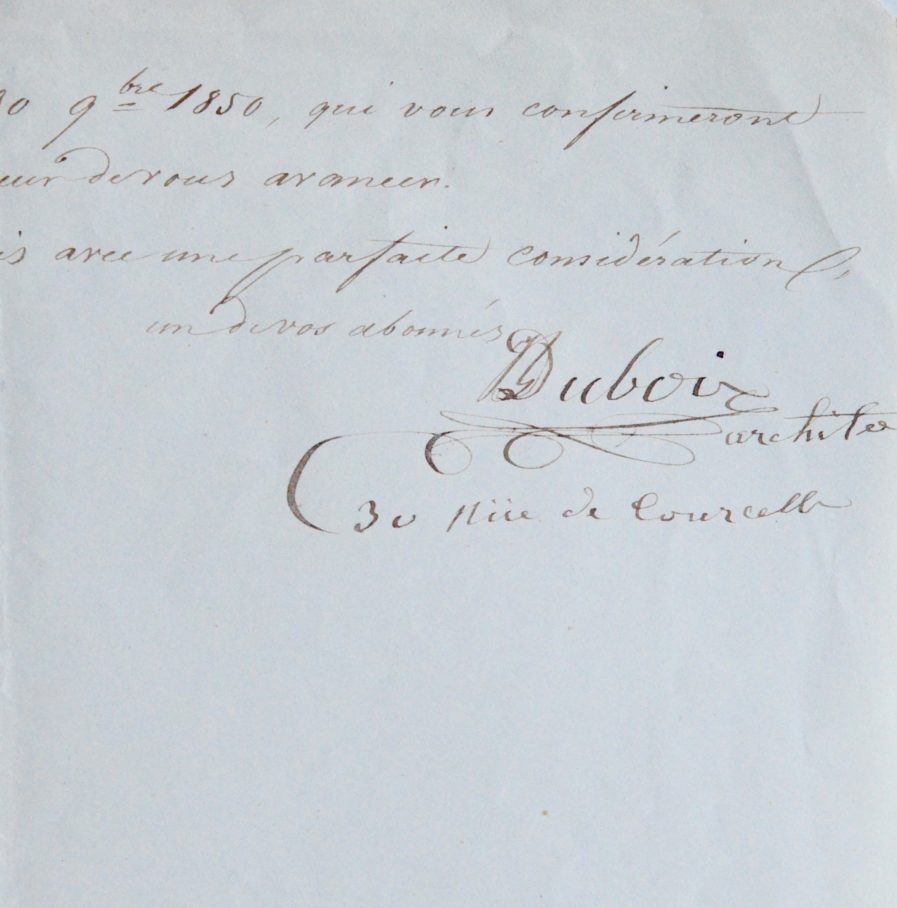 30 9bre 1850, qui vous confirmeront
de vous avancer.
is avec une parfaite considération
un de vos abonnés
Dubois
architec
30 Rüe de Courcelle